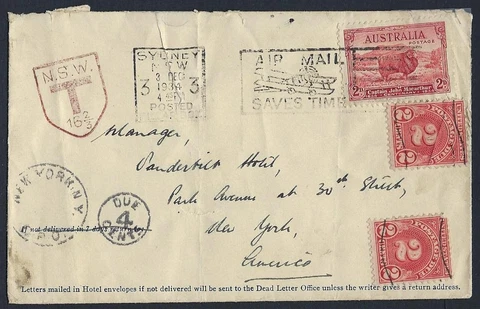 SYDNEY
N.S.W
3 DEC
3 3
1934
POSTED
AIR MAIL
SAVES TIME
AUSTRALIA
POSTAGE
2D 2D
Captain John Macarthur
N.S.W.
T
16 2/3
Manager,
Vanderbilt Hotel,
Park Avenue at 30th Street,
New York,
America
2
2
NEW YORK, N.Y.
DUE
4
CENTS
If not delivered in 7 days return to
Letters mailed in Hotel envelopes if not delivered will be sent to the Dead Letter Office unless the writer gives a return address.